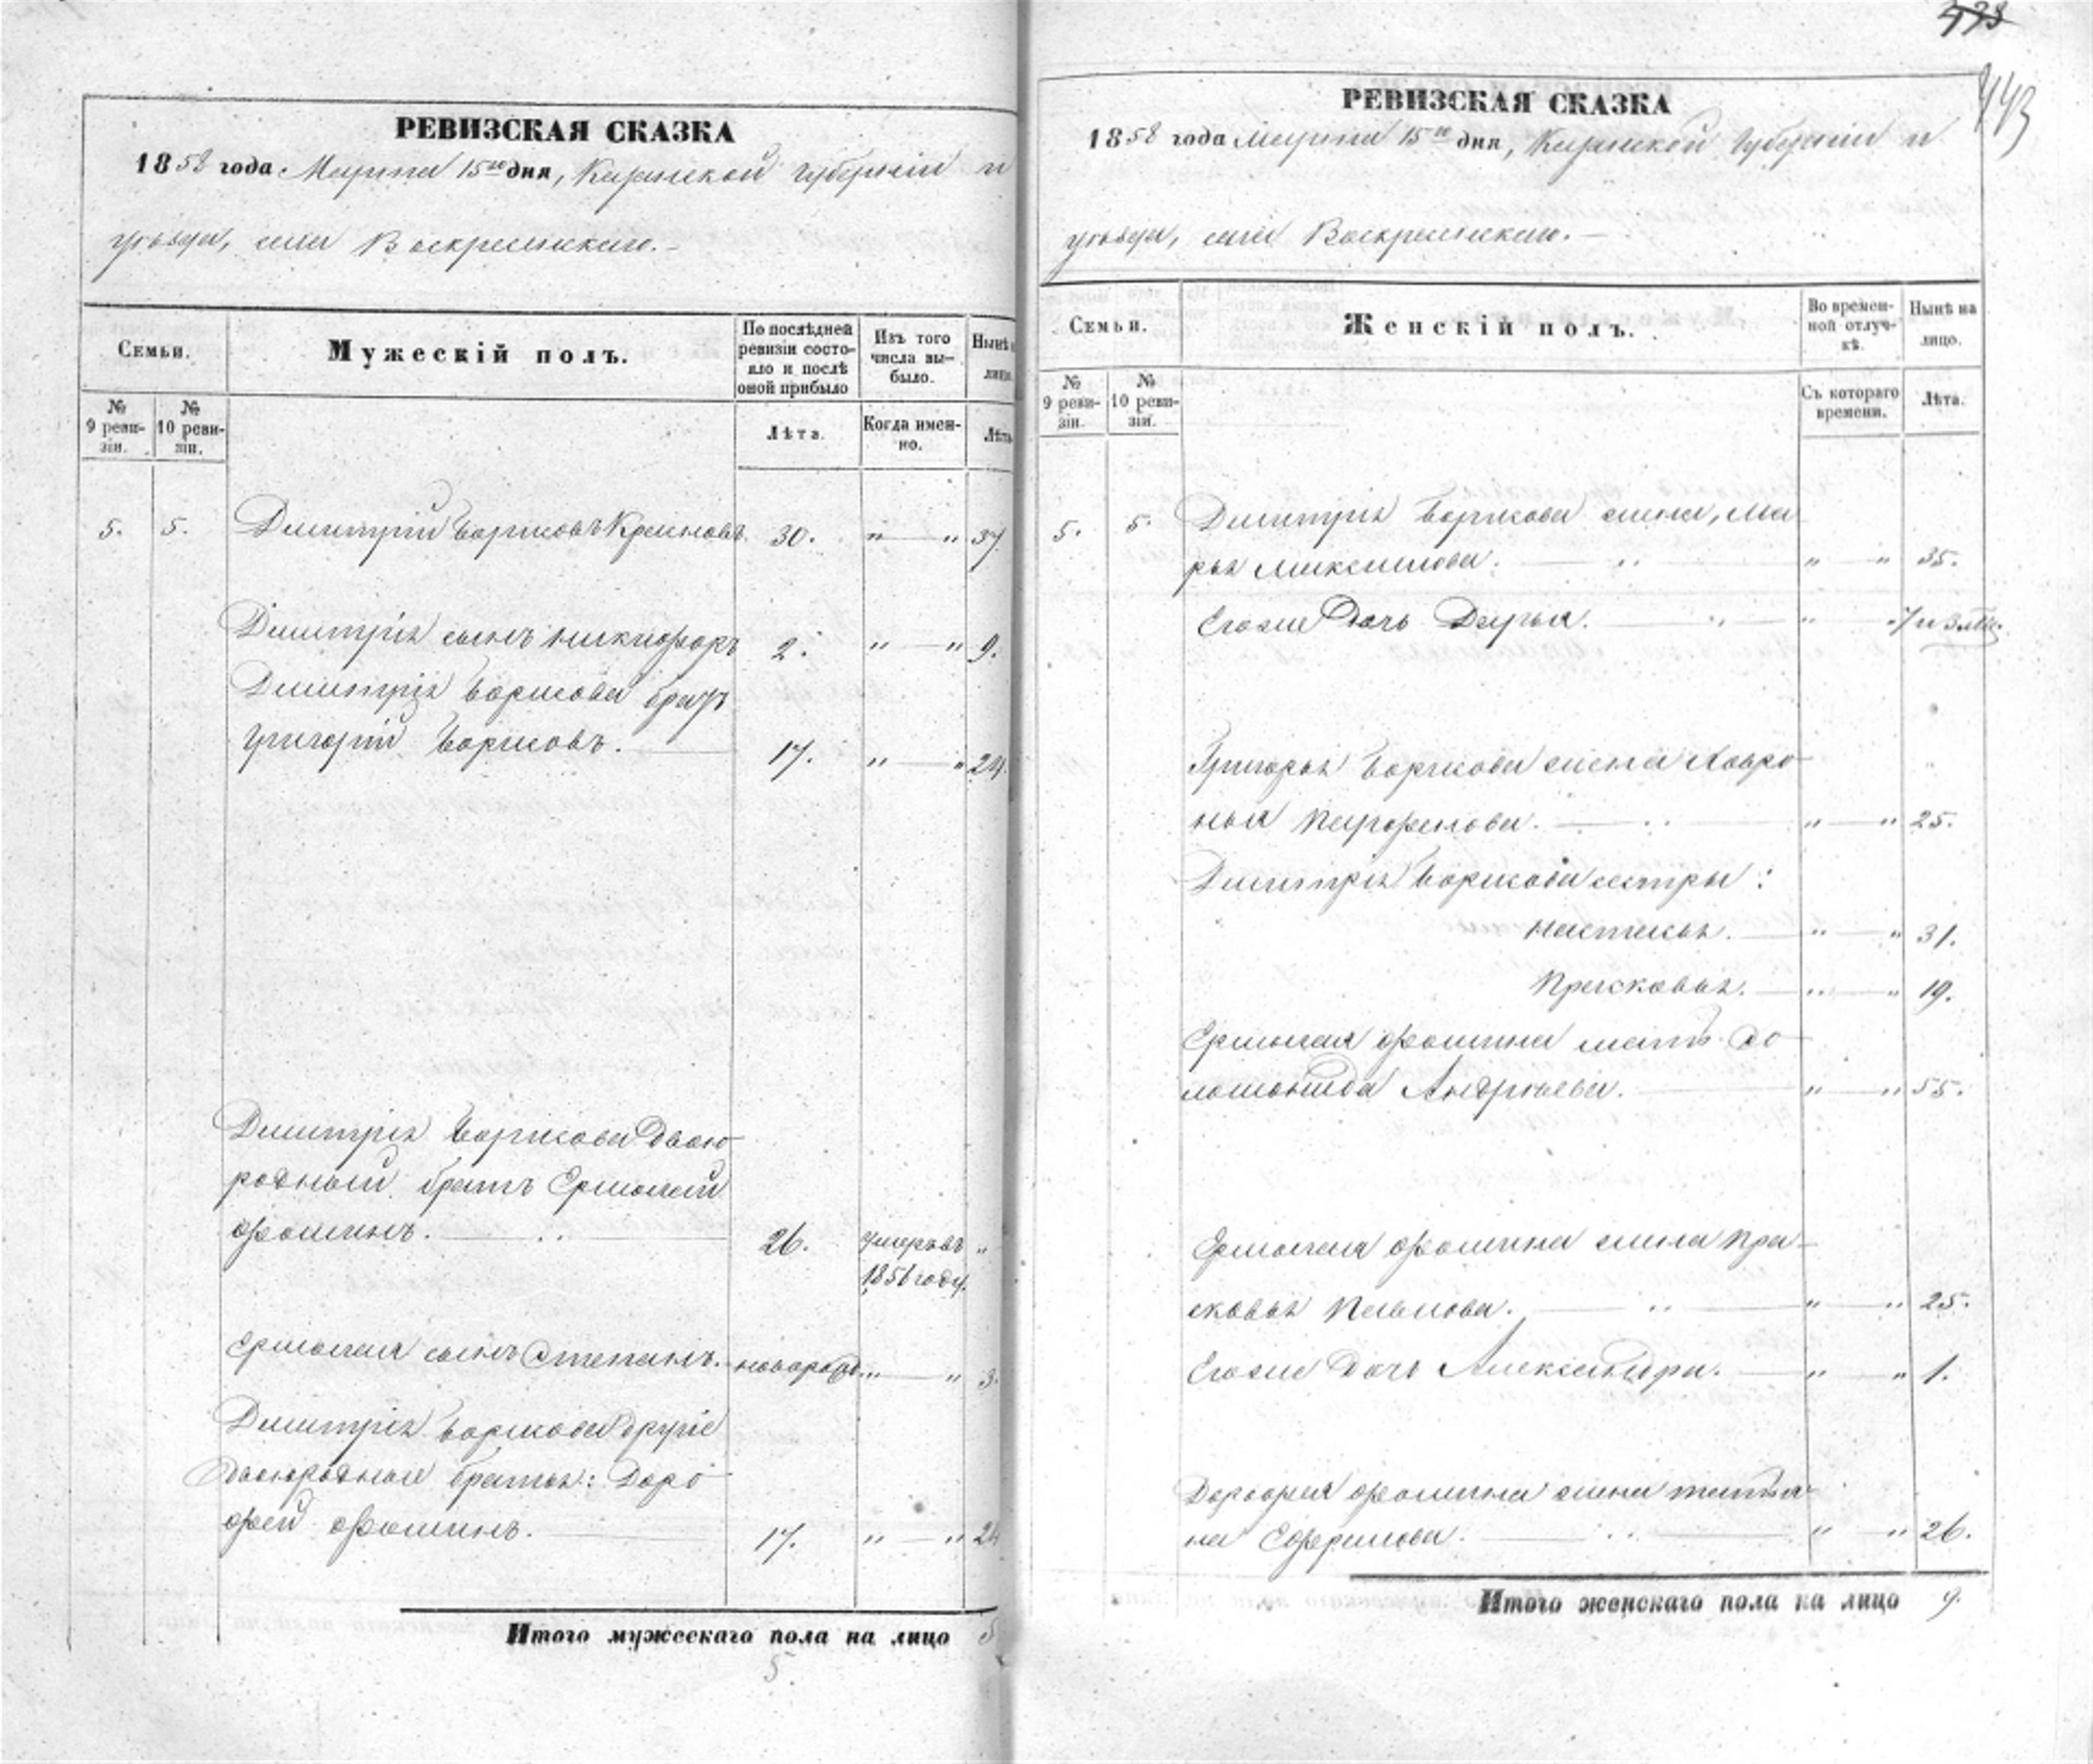 443
РЕВИЗСКАЯ СКАЗКА
1858 года Марта 15го дня, Казанской губернiи и
уѣзда, села Воскресенскаго.
Семьи.
Мужескiй полъ.
По послѣдней ревизiи состояло и послѣ оной прибыло
Изъ того числа выбыло.
Нынѣ
лицо.
№ 9 ревизiи.
№ 10 ревизiи.
Лѣта.
Когда именно.
Лѣта
5. 5. Димитрiй Борисовъ 30. „ — „ 37.
Димитрiя сынъ Никифоръ 2. „ — „ 9.
Димитрiя Борисова братъ
Григорiй Борисовъ. 17. „ — „ 24.
Димитрiя Борисова двою-
родный братъ Ермолай
Фоминъ. 26. умеръ въ „
1856 году.
Ермолая сынъ Степанъ. новорожд. „ — „ 3.
Димитрiя Борисова другiе
двоюродные братья: Доро-
фей Фоминъ. 17. „ — „ 24
Итого мужескаго пола на лицо 5
5
РЕВИЗСКАЯ СКАЗКА
1858 года Марта 15го дня, Казанской губернiи и
уѣзда, села Воскресенскаго.
Семьи.
Женскiй полъ.
Во временной отлучкѣ.
Нынѣ на лицо.
№ 9 ревизiи.
№ 10 ревизiи.
Съ котораго времени.
Лѣта.
5. 5. Димитрiя Борисова жена, Ма
рья Максимова. „ — „ 35.
Егоже дочь Дарья. „ „ 7 и 3 мѣс.
Григорья Борисова жена Хавро-
нья Парфенова. „ — „ 25.
Димитрiя Борисова сестры:
Настасья. „ — „ 31.
Прасковья. „ — „ 19.
Ермолая Фомина мать Со-
ломонида Андреева. „ — „ 55.
Ермолая Фомина жена Пра-
сковья Павлова. „ — „ 25.
Егоже дочь Александра. „ „ 1.
Дорофея Фомина жена Татья-
на Ефремова. „ „ 26.
Итого женскаго пола на лицо 9.